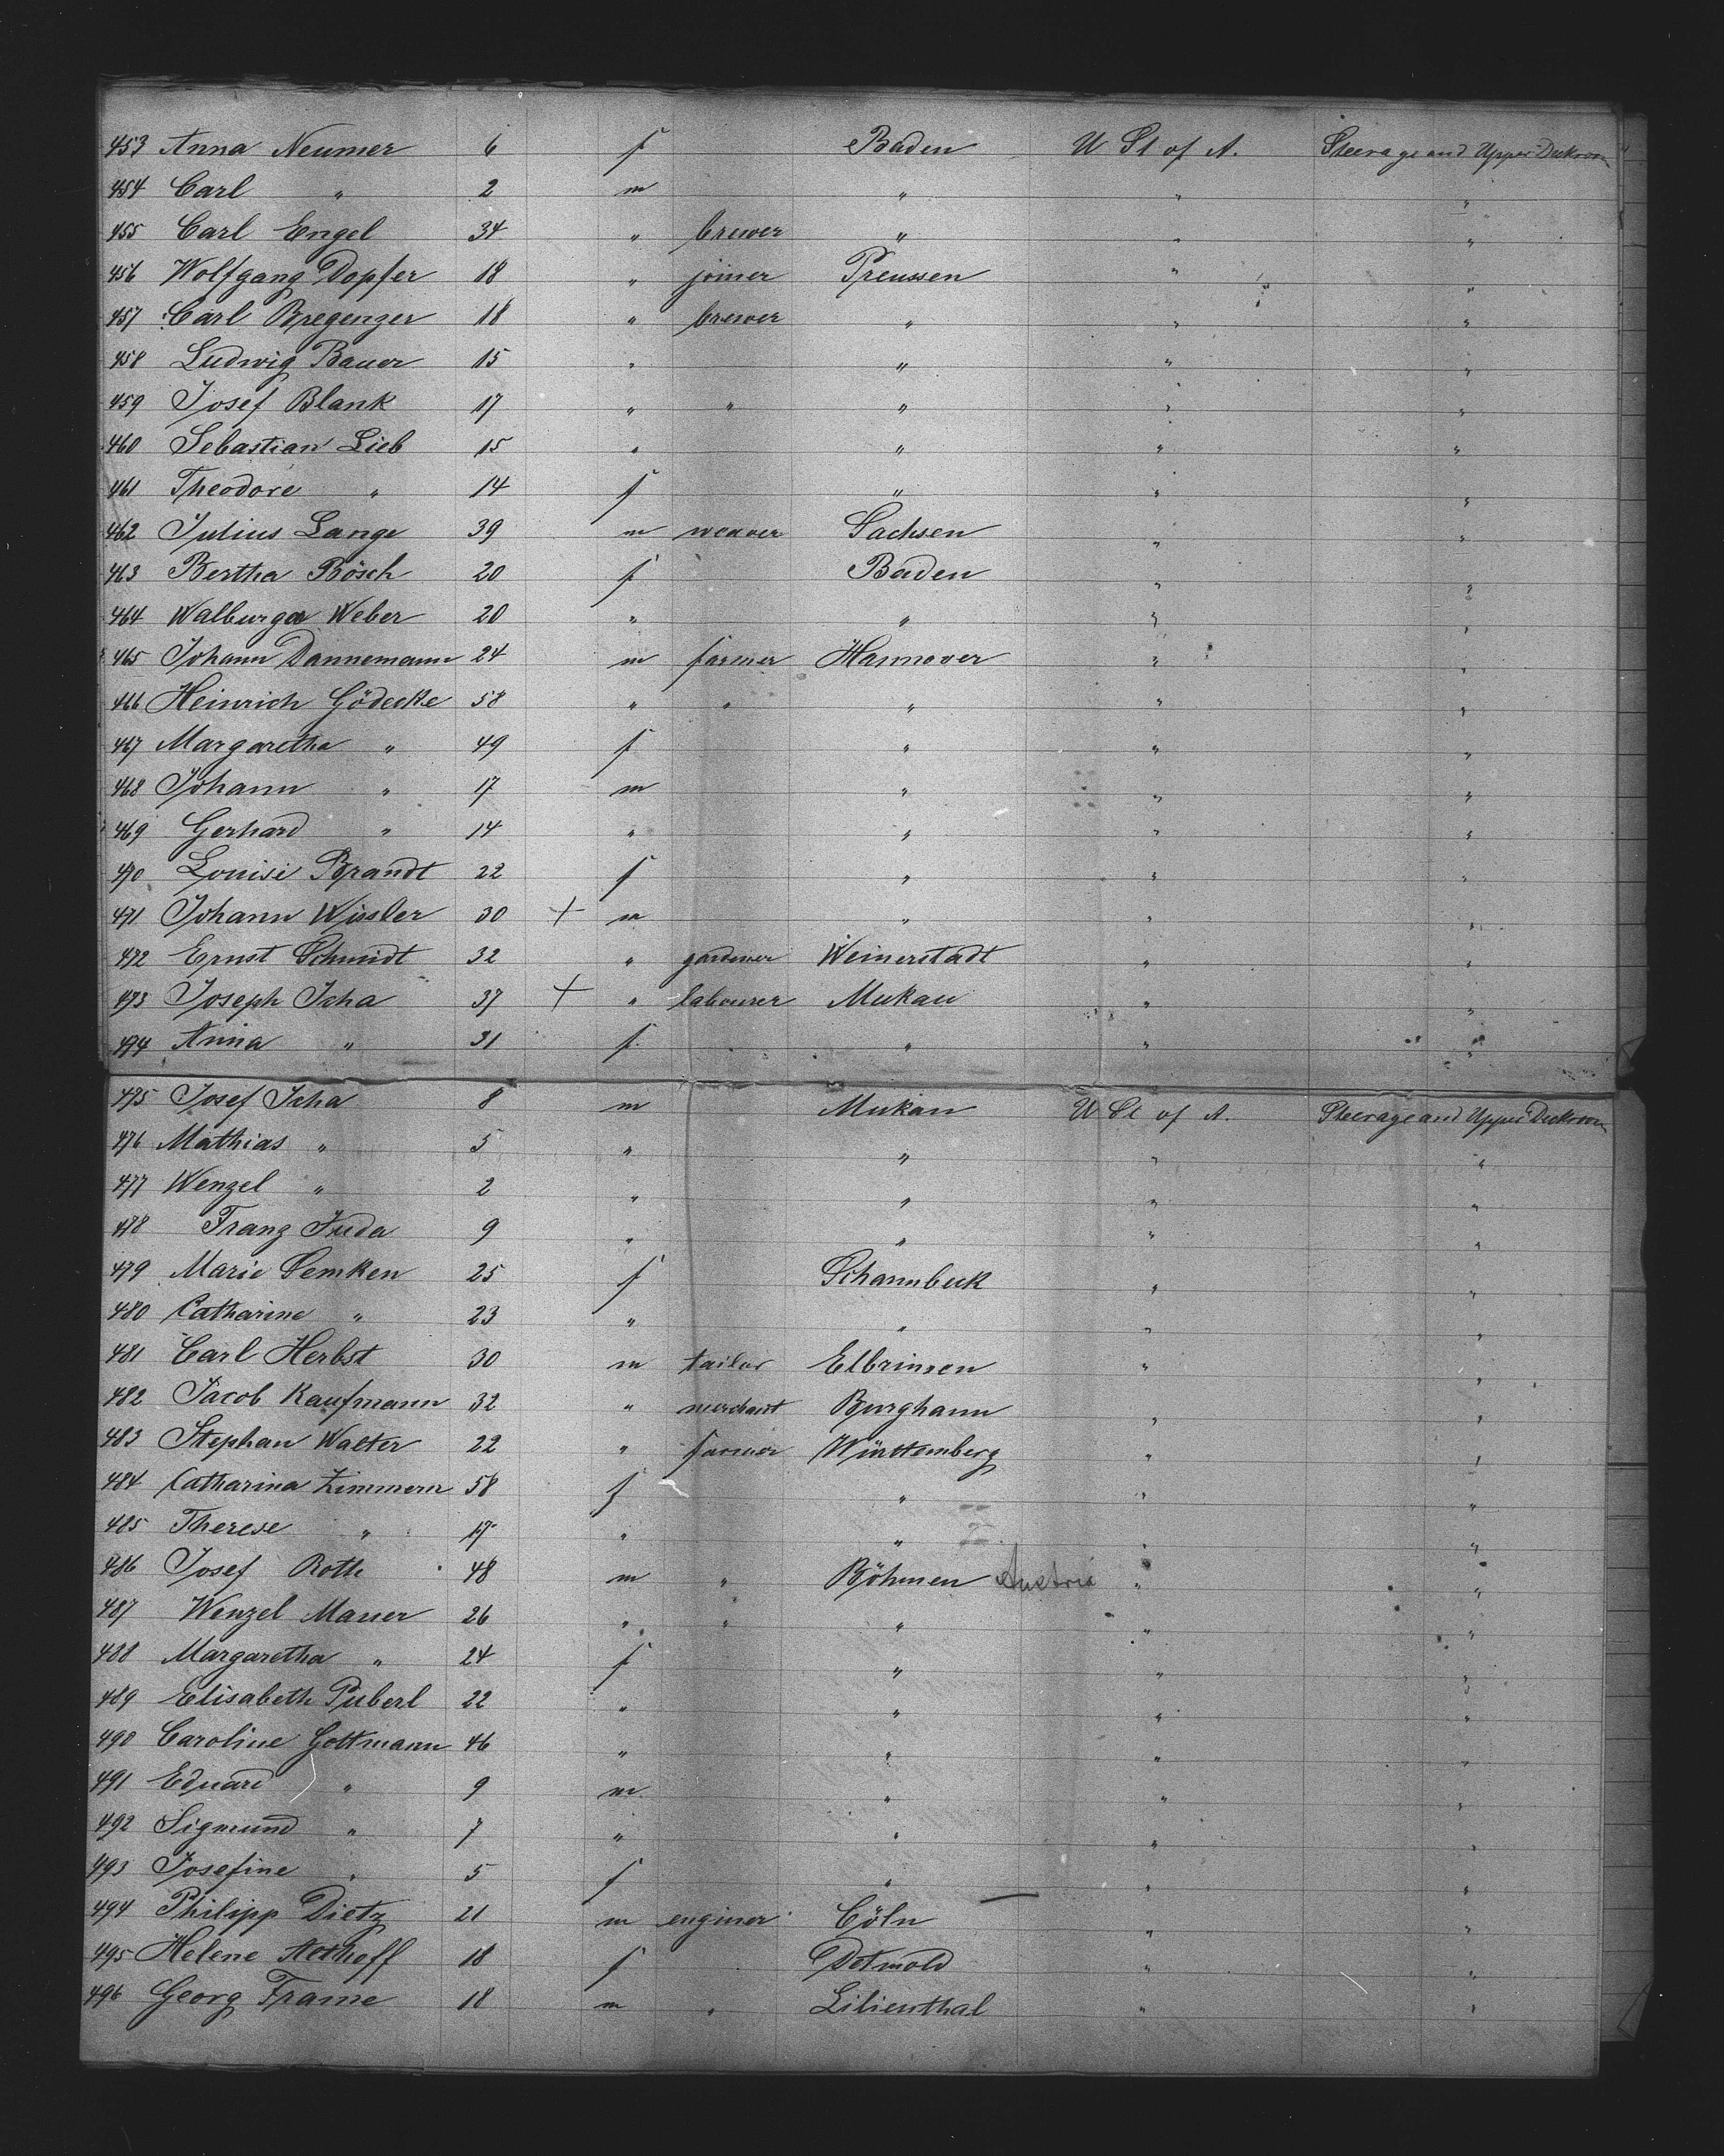 453 Anna Neumer 6 f Baden U St of A. Steerage and Upper Deckroom
454 Carl " 2 m " " "
455 Carl Engel 34 " brewer " " "
456 Wolfgang Dopfer 18 " joiner Preussen " "
457 Carl Bregenzer 18 " brewer " " "
458 Ludwig Bauer 15 " " " "
459 Josef Blank 17 " " " " "
460 Sebastian Lieb 15 " " " "
461 Theodore " 14 f " " "
462 Julius Lange 39 m weaver Sachsen " "
463 Bertha Bösch 20 f Baden " "
464 Walburga Weber 20 " " " "
465 Johann Dannemann 24 m farmer Hannover " "
466 Heinrich Gödecke 58 " " " " "
467 Margaretha " 49 f " " "
468 Johann " 17 m " " "
469 Gerhard " 14 " " " "
470 Louise Brandt 22 f " " "
471 Johann Wissler 30 + m " " "
472 Ernst Schmidt 32 " gardener Weinerstadt " "
473 Joseph Icha 37 + " labourer Mukau " "
474 Anna " 31 f " " "
475 Josef Icha 8 m Mukau U St of A. Steerage and Upper Deckroom
476 Mathias " 5 " " " "
477 Wenzel " 2 " " " "
478 Franz Juda 9 " " " "
479 Marie Semken 25 f Schannbeck " "
480 Catharine " 23 " " " "
481 Carl Herbst 30 m tailor Elbrinsen " "
482 Jacob Kaufmann 32 " merchant Burghaun " "
483 Stephan Walter 22 " farmer Württemberg " "
484 Catharina Zimmern 58 f " " "
485 Therese " 17 " " " "
486 Josef Roth 48 m " Böhmen Austria " "
487 Wenzel Mauer 26 " " " " "
488 Margaretha " 24 f " " "
489 Elisabeth Puberl 22 " " " "
490 Caroline Gottmann 46 " " " "
491 Eduard " 9 m " " "
492 Sigmund " 7 " " " "
493 Josefine " 5 f " " "
494 Philipp Dietz 21 m enginer Cöln " "
495 Helene Althoff 18 f Detmold " "
496 Georg Frame 18 m " Lilienthal " "